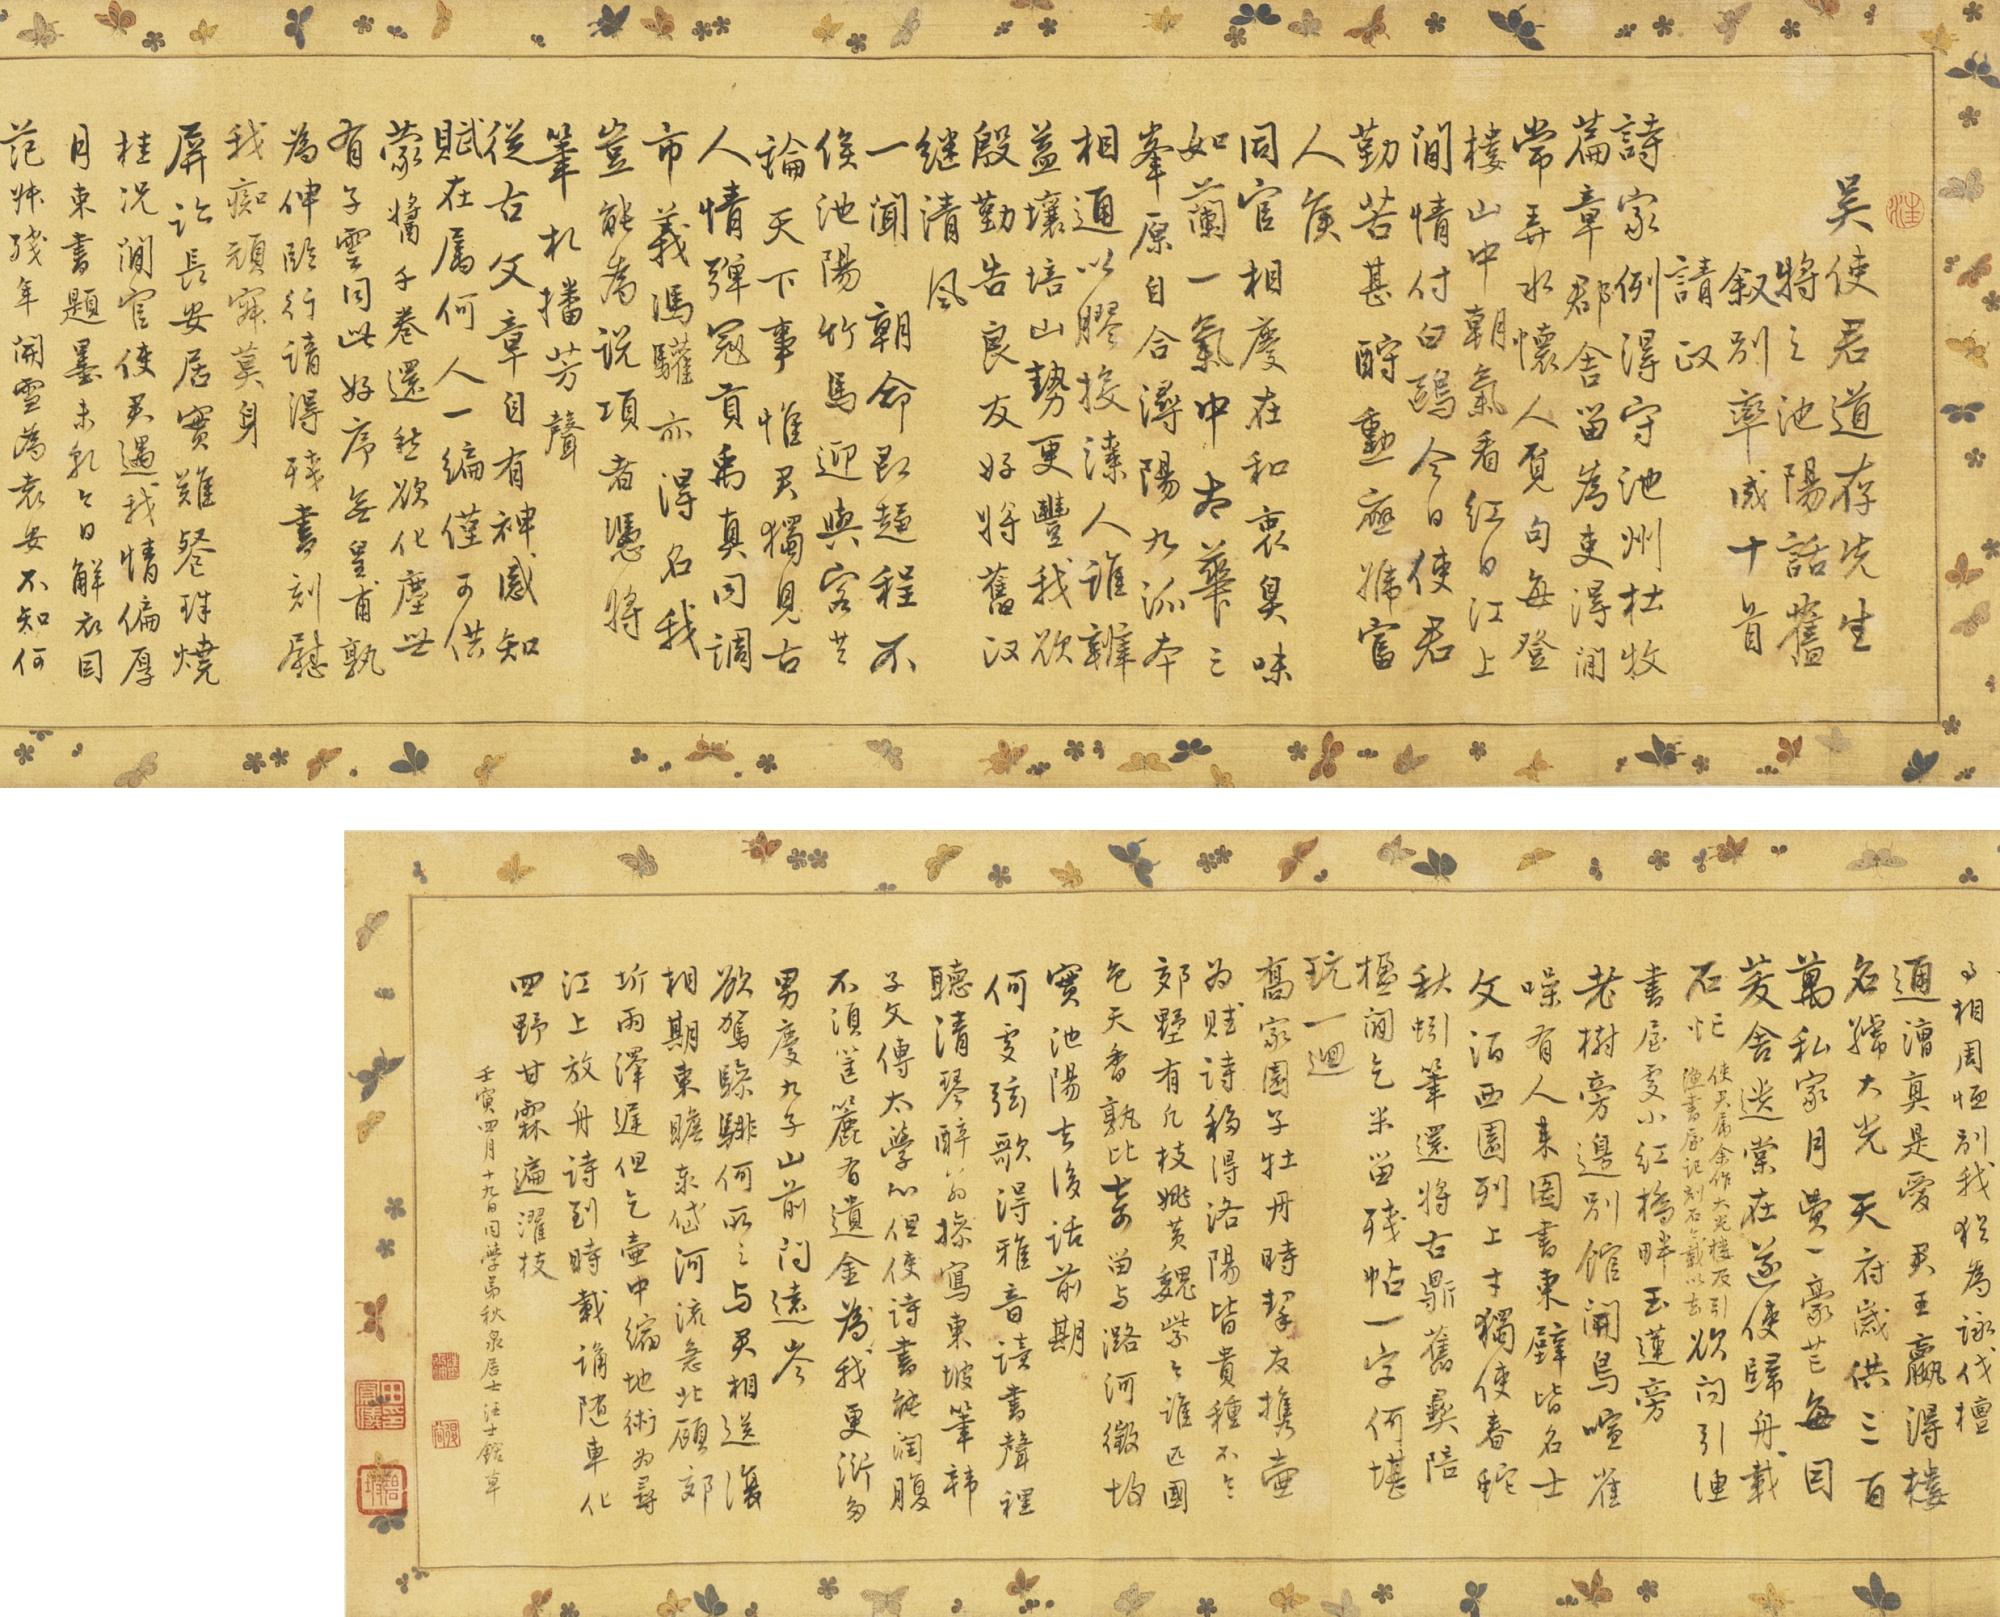 吴使君道存先生
將之池陽話舊
叙别率成十首
請政
詩家例得守池州杜牧
篇章郡舍留為吏得閒
常弄水懷人覓句每登
樓山中朝氣看紅日江上
閒情付白鷗今日使君
勤苦甚酹勳應拜富
人侯
同官相慶在和衷臭味
如蘭一氣中九華三
峯原自合潯陽九派本
相通以膠投漆人誰辨
益壤培山勢更豐我欲
殷勤告良友好將舊政
繼清風
一聞朝命即趨程不
侯池陽竹馬迎與客共
論天下事惟君獨見古
人情彈冠貢禹真同調
市義馮驩亦得名我
豈能為說項者憑將
筆札播芳聲
從古文章自有神感知
賦在屬何人一編僅可供
蒙醬千卷還愁欲化塵世
有子雲同此好序無皇甫孰
為伸臨行請得殘書刻慰
我痴頑寂莫身
屏跡長安居實難餐珠燒
桂況閒官使君遇我情偏厚
月柬書題墨未乾令日解衣同
范叔殘年開雪為袁安不知何
日相周恤别我猶為詠伐檀
通漕真是愛君王贏得樓
名號大光天府歲供三百
萬私家月費一豪芒每因
茇舍选棠在遂使歸舟載
石忙使君屬余作大光樓及引漣書屋記刻石載以去欲問引漣
書屋雯小紅橋畔玉蓮旁
老樹旁邊别館開鳥喧雀
噪有人来圖書東壁皆名士
文酒西園列上才獨使春蛇
秋蚓筆還將古鼎舊彝陪
楹間乞米留殘帖一字何堪
玩一迴
喬家園子牡丹時挈友攜壺
為賦詩移得洛陽皆貴種不令
郊墅有凡枝姚黄魏紫令誰匹國
色天香孰比奇留与潞河徵故
實池陽去後話前期
何雯弦歌得雅音讀書聲裡
聽清琴醉翁操寫東坡筆韩
子文傳太學心但使詩書能潤腹
不須筐簏有遺金為我更添多
男慶九子山前問遠岑
欲駕驂騑何所之与君相送復
相期東瞻泰岱河流急北顧郊
圻雨澤遲但乞壷中縮地術為尋
江上放舟詩到時載誦隨車化
四野甘霖遍濯枝
壬寅四月十九日同學弟秋泉居士汪士鋐草